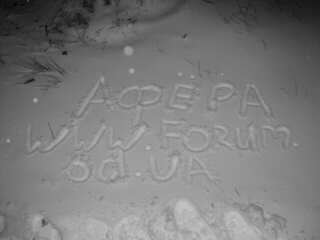 АФЕРА
www.Forum.
od.UA